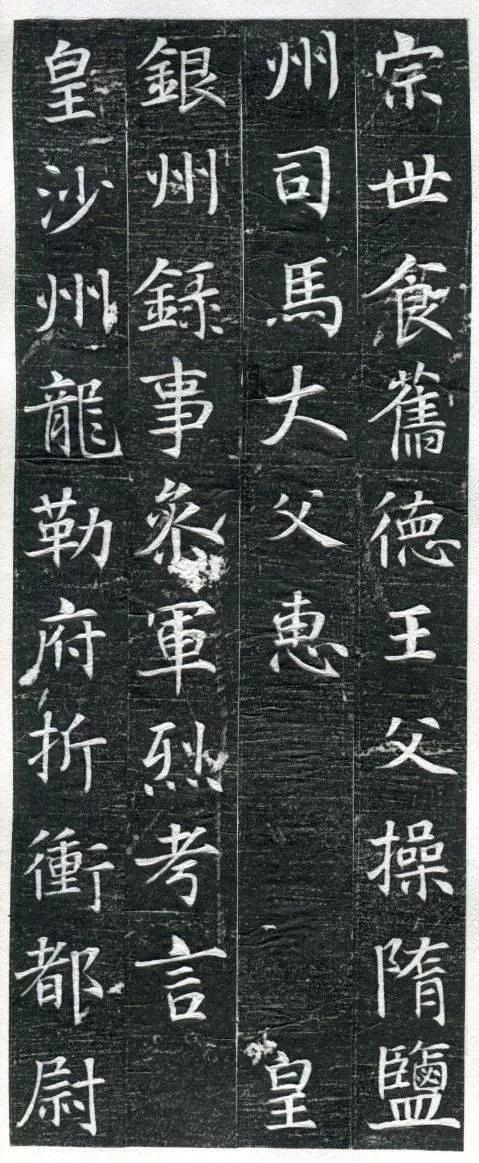 宗世食舊德王父操隋鹽
州司馬大父惠皇
銀州錄事叅軍烈考言
皇沙州龍勒府折衝都尉